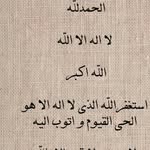 الحمدلله
لا اله الا الله
الله اکبر
استغفرالله الذی لا اله الا هو
الحی القیوم و اتوب الیه